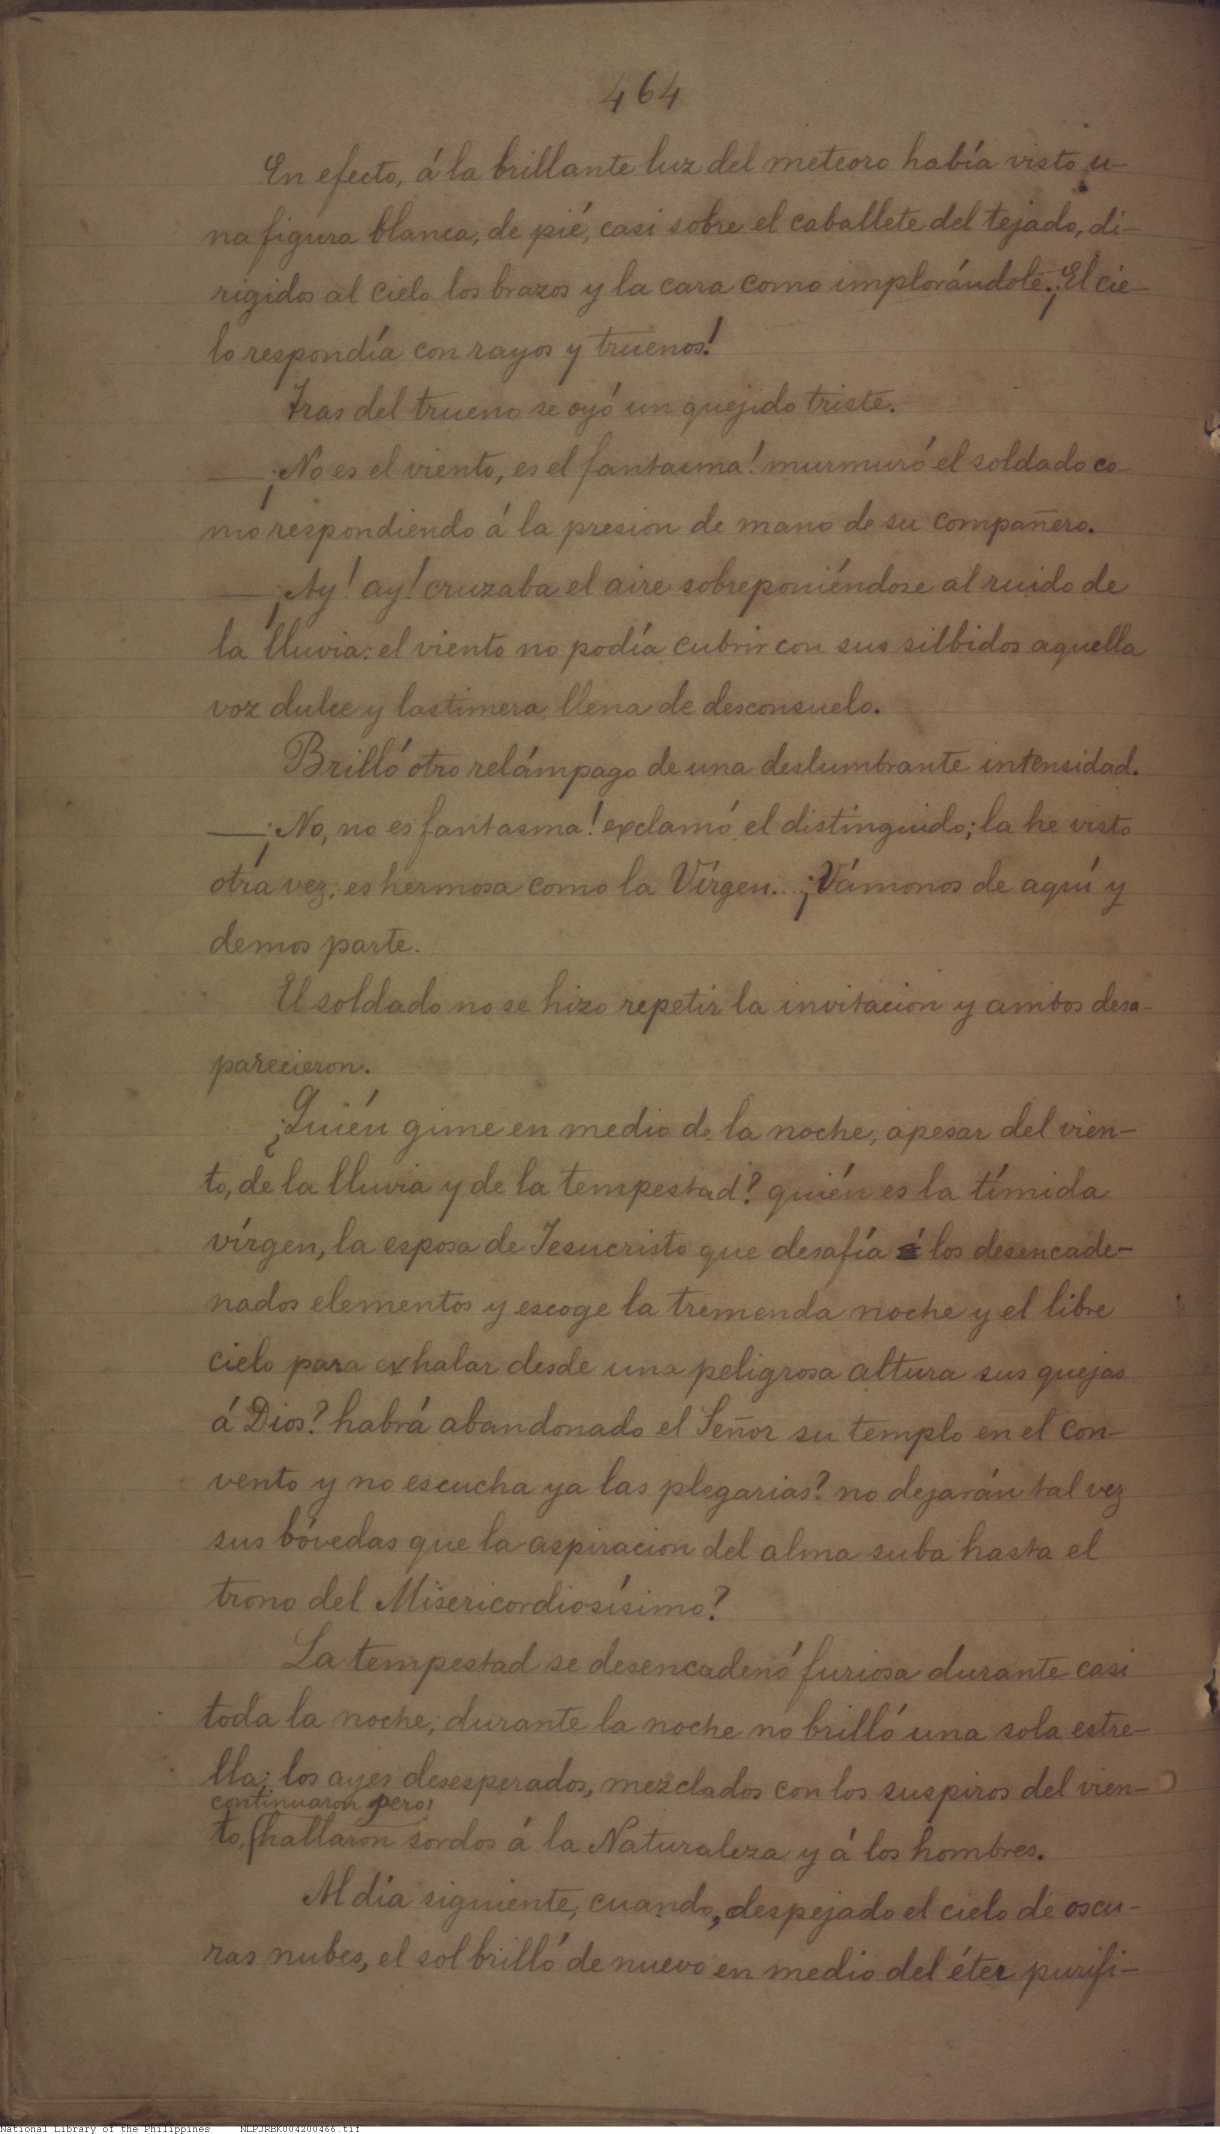 464
En efecto, á la brillante luz del meteoro había visto u-
na figura blanca, de pié, casi sobre el caballete del tejado, di-
rigidos al cielo los brazos y la cara como implorándole. ¡El cie-
lo respondía con rayos y truenos!
Tras del trueno se oyó un quejido triste.
—¡No es el viento, es el fantasma! murmuró el soldado co-
mo respondiendo á la presion de mano de su compañero.
—¡Ay! ay! cruzaba el aire sobreponiéndose al ruido de
la lluvia: el viento no podía cubrir con sus silbidos aquella
voz dulce y lastimera llena de desconsuelo.
Brilló otro relámpago de una deslumbrante intensidad.
—¡No, no es fantasma! exclamó el distinguido; la he visto
otra vez; es hermosa como la Vírgen... ¡Vámonos de aquí y
demos parte.
El soldado no se hizo repetir la invitacion y ambos desa-
parecieron.
¿Quién gime en medio de la noche, apesar del vien-
to, de la lluvia y de la tempestad? quién es la tímida
vírgen, la esposa de Jesucristo que desafía á los desencade-
nados elementos y escoge la tremenda noche y el libre
cielo para exhalar desde una peligrosa altura sus quejas
á Dios? habrá abandonado el Señor su templo en el con-
vento y no escucha ya las plegarias? no dejarán tal vez
sus bóvedas que la aspiracion del alma suba hasta el
trono del Misericordiosísimo?
La tempestad se desencadenó furiosa durante casi
toda la noche; durante la noche no brilló una sola estre-
lla; los ayes desesperados, mezclados con los suspiros del vien-
continuaron pero
to, hallaron sordos á la Naturaleza y á los hombres.
Al día siguiente, cuando, despejado el cielo de oscu-
ras nubes, el sol brilló de nuevo en medio del éter purifi-
National Library of the Philippines NLPJRBK004200466.tif